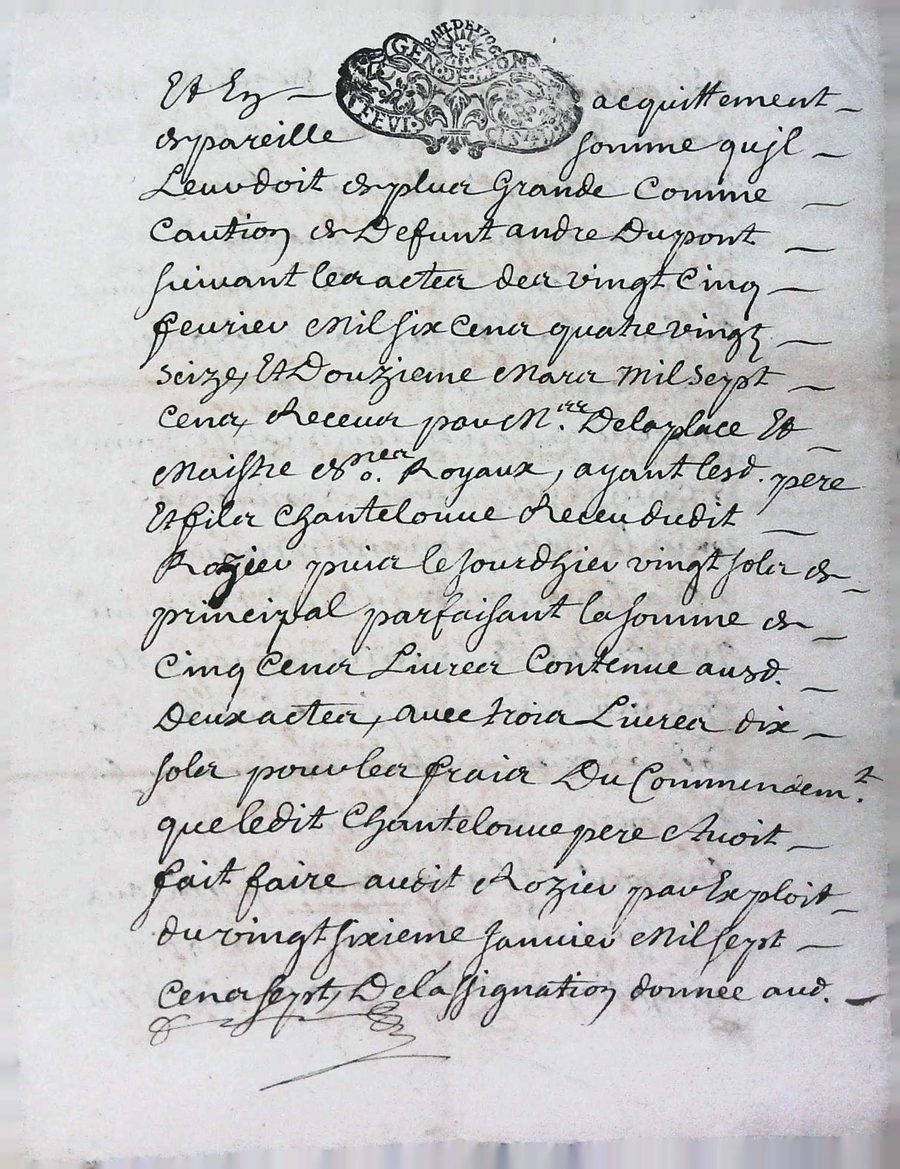 BAIL DE 1706
GEN · DE · LION
Et En — acquittement —
de pareille somme qu'jl —
Leur doit de plus Grande Comme —
Caution de Defunt andre Dupont —
suivant les actes des vingt Cinq —
feurier Mil six Cens quatre vingt —
seize, Et Douzieme Mars Mil sept —
Cens, Receus par M.es Delaplace Et —
Maistre No.res Royaux, ayant lesd. pere
Et fils Chantelouue Receu dudit —
Rozier puis le jourdhier vingt sols de —
principal parfaisant la somme de —
Cinq Cens Livres Contenue ausd. —
Deux actes, auec trois Liures dix —
sols pour les frais Du Commendem.t
que ledit Chantelouue pere Auoit —
fait faire audit Rozier par Exploit —
du vingt sixieme Januier Mil sept —
Cens sept, De lassignation donnée aud. —